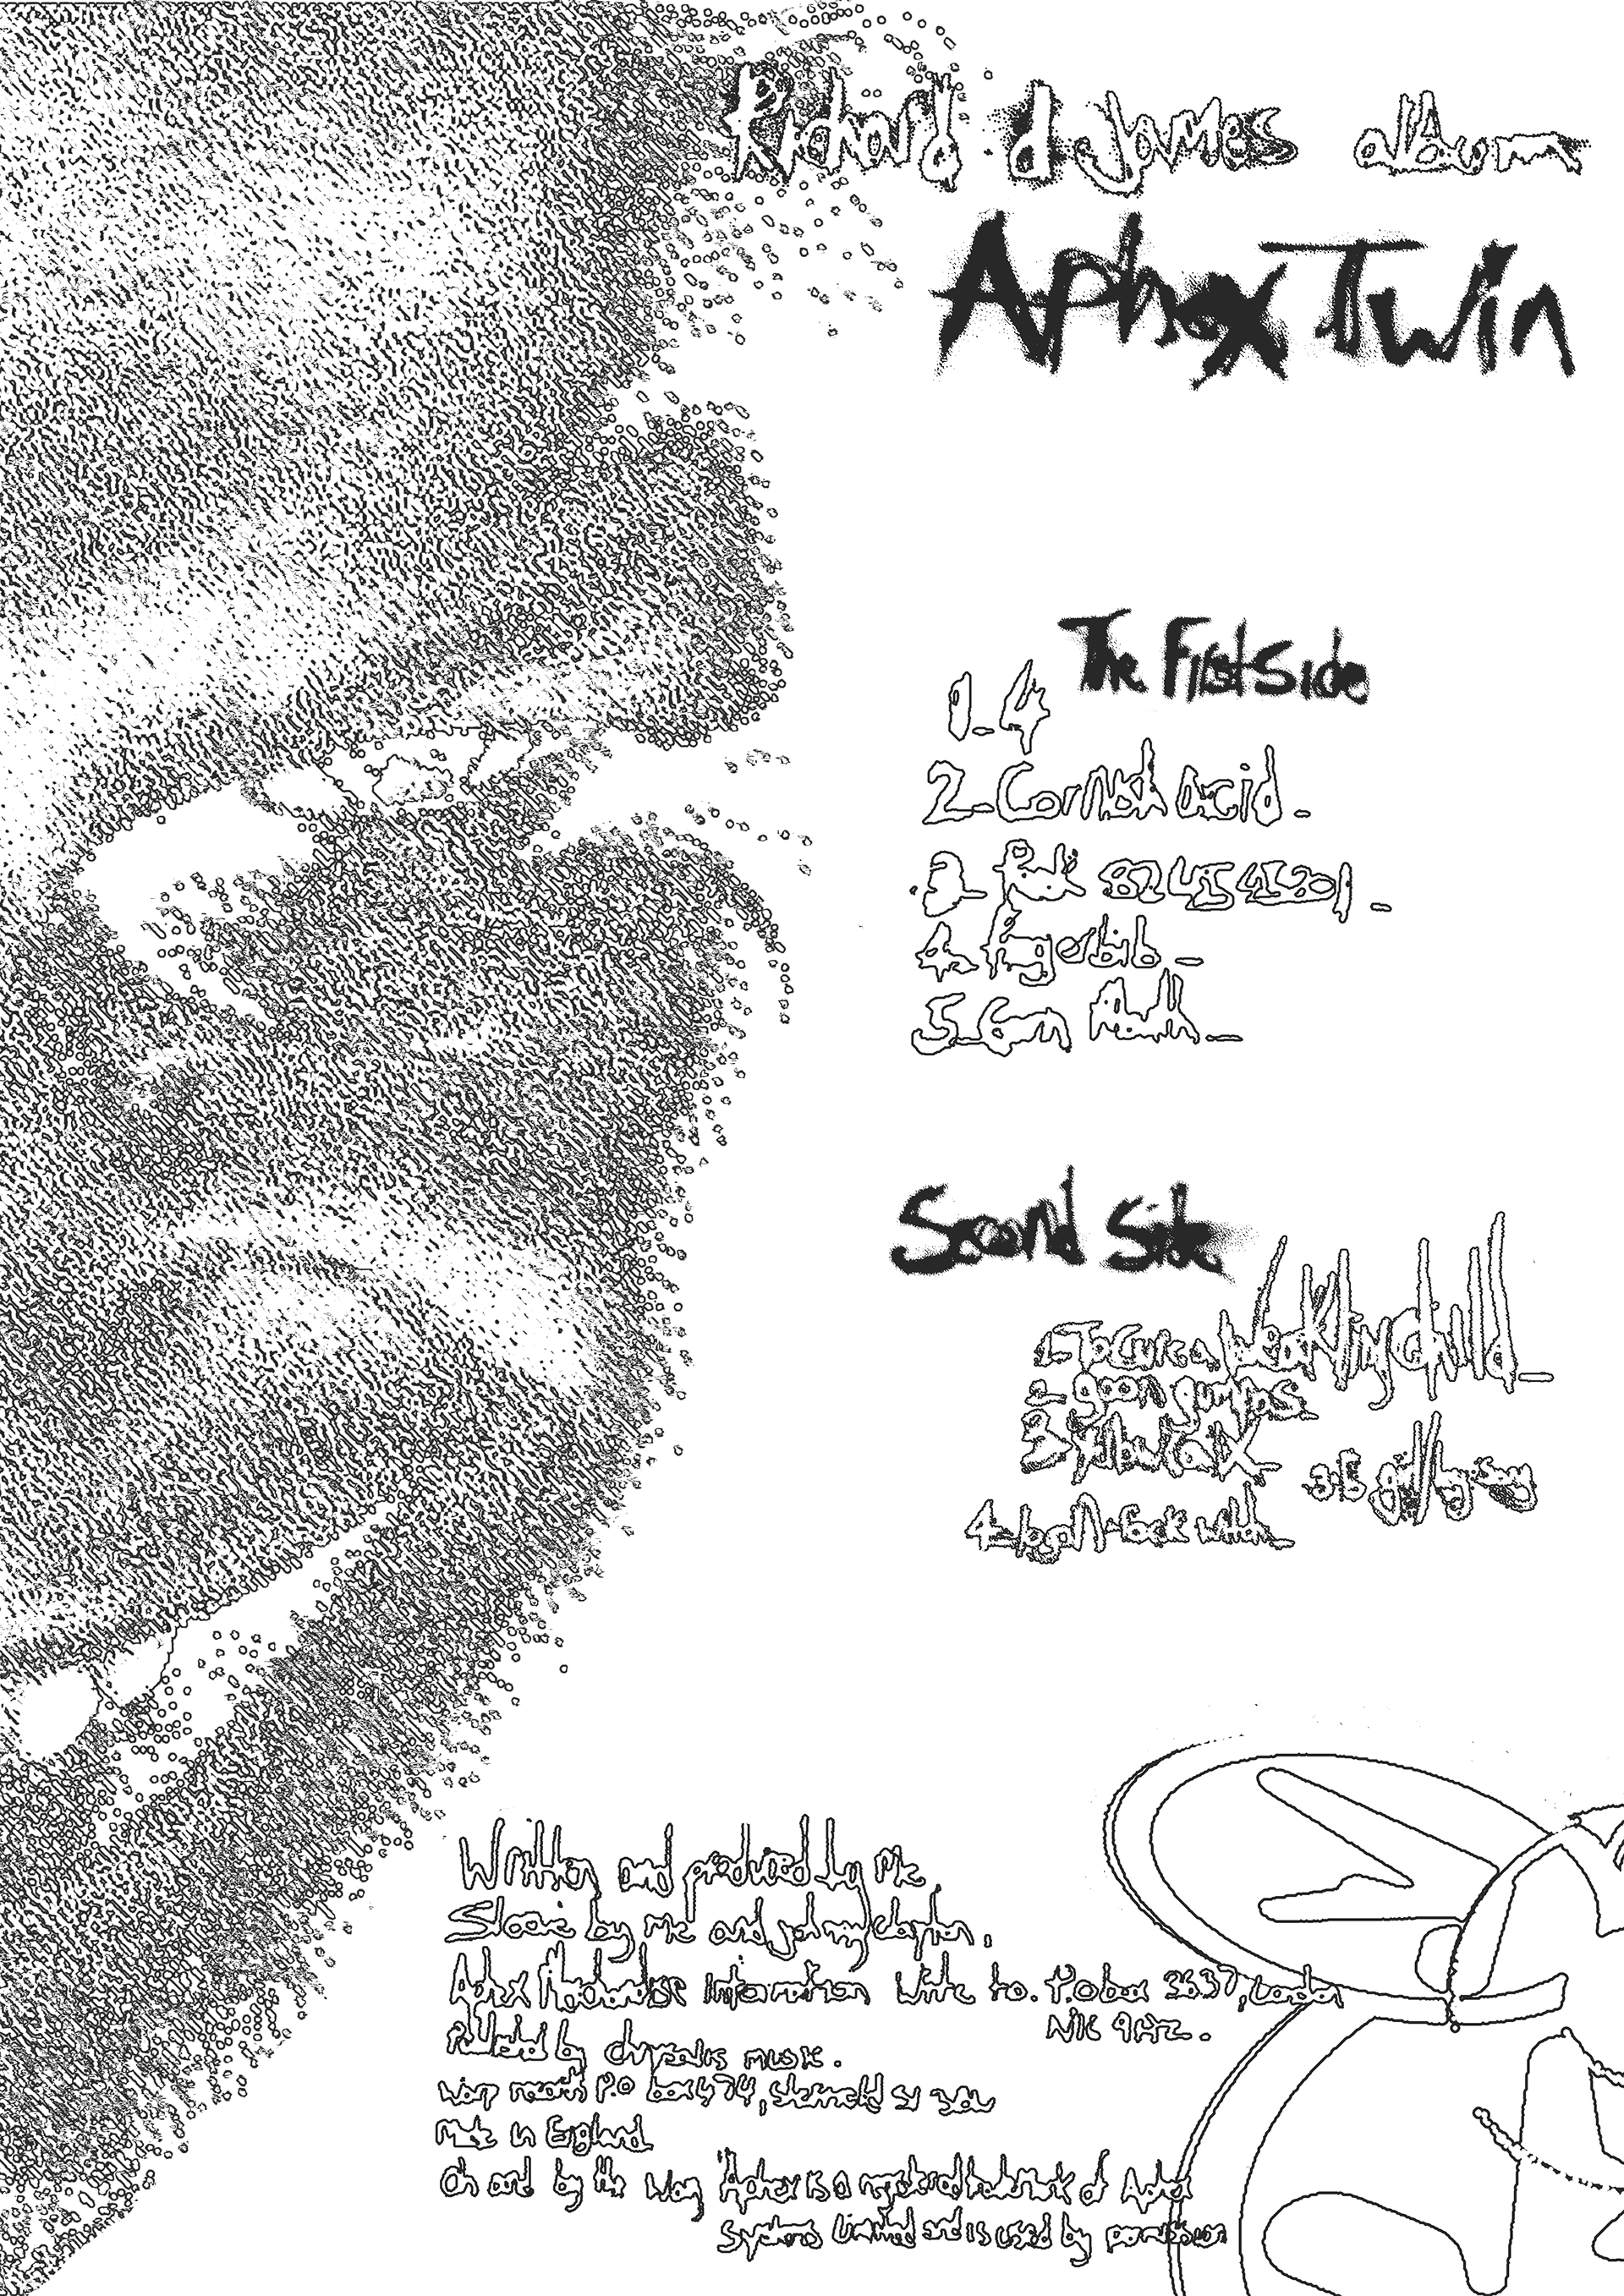 Richard d. james album
Aphex Twin
The First Side
1_4
2_Cornish acid_
3_Peek 82454 5201_
4_fingerbib_
5_Corn Mouth_
Second Side
1_To cure a weakling child_
2_goon gumps_
3_yellow calx_
3.5 girl/boy song
4_logan rock witch_
Written and produced by Me,
Sleeve by me and johnny clayton,
Aphex Merchandise information write to. P.O box 3637, London
NW 9AZ.
Published by chrysalis music.
warp records P.O box 474, sheffield S1
Made in England
Oh and by the way 'Aphex is a registered trademark of Aphex
Systems Limited and is used by permission